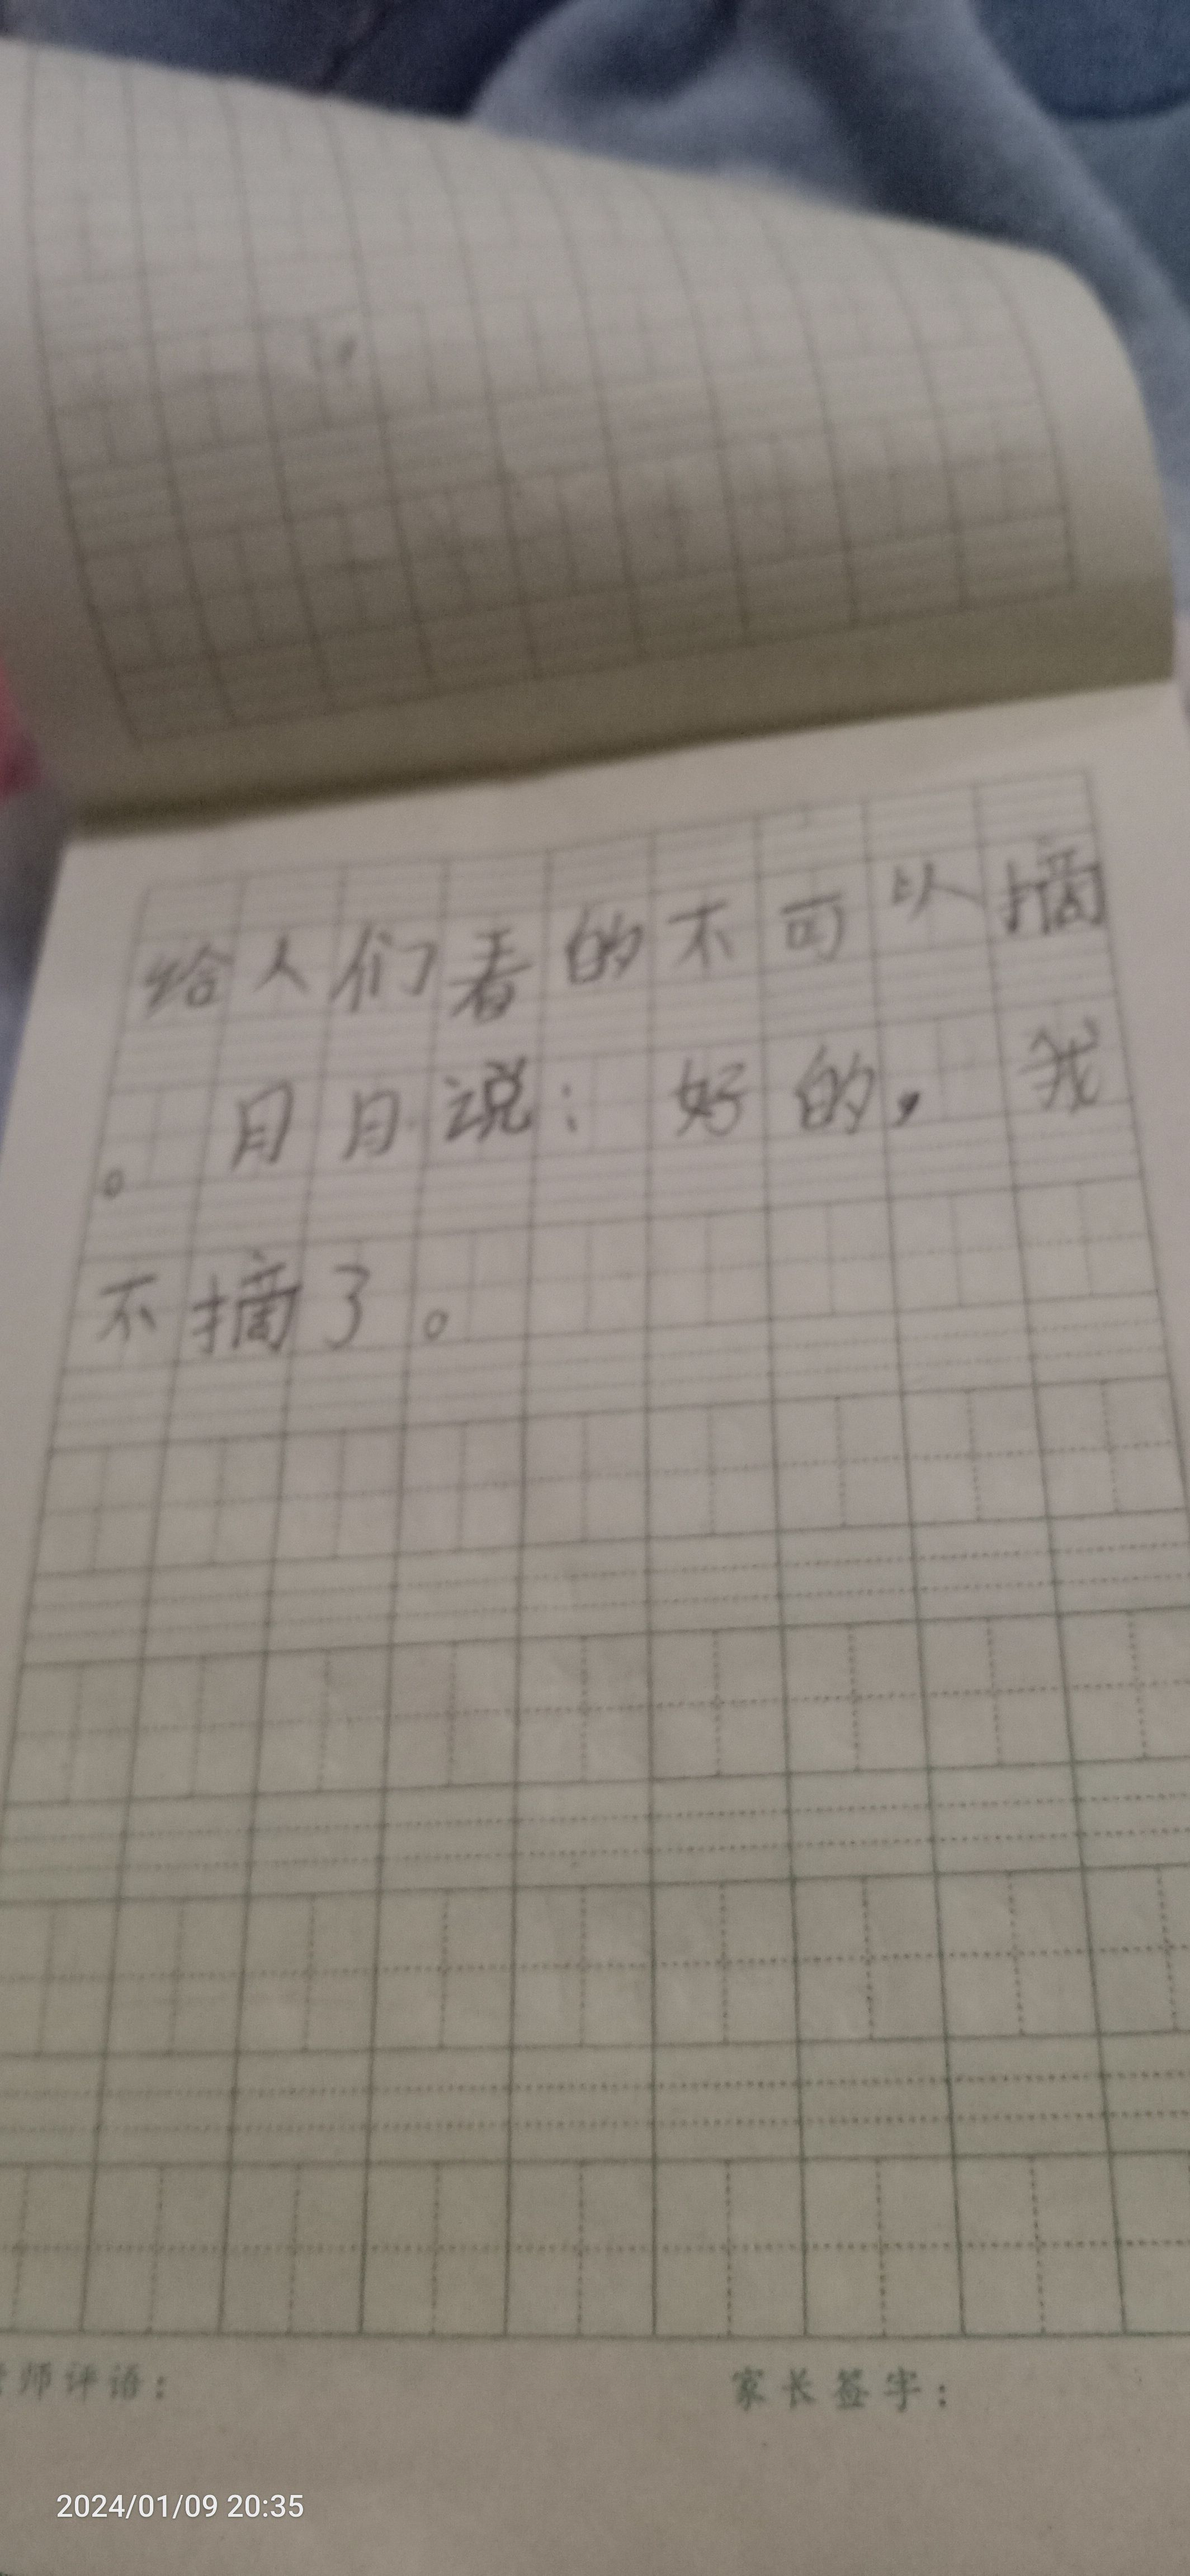 给人们看的不可以摘
。月月说：好的，我
不摘了。
师评语：
家长签字：
2024/01/09 20:35